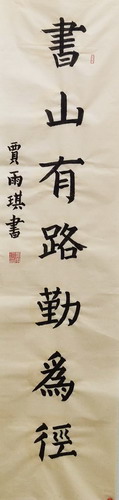 書山有路勤爲徑
賈雨琪書